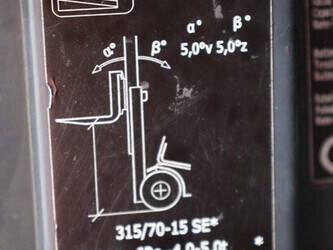 α° β°
α° β° 5,0°v 5,0°z
315/70-15 SE*